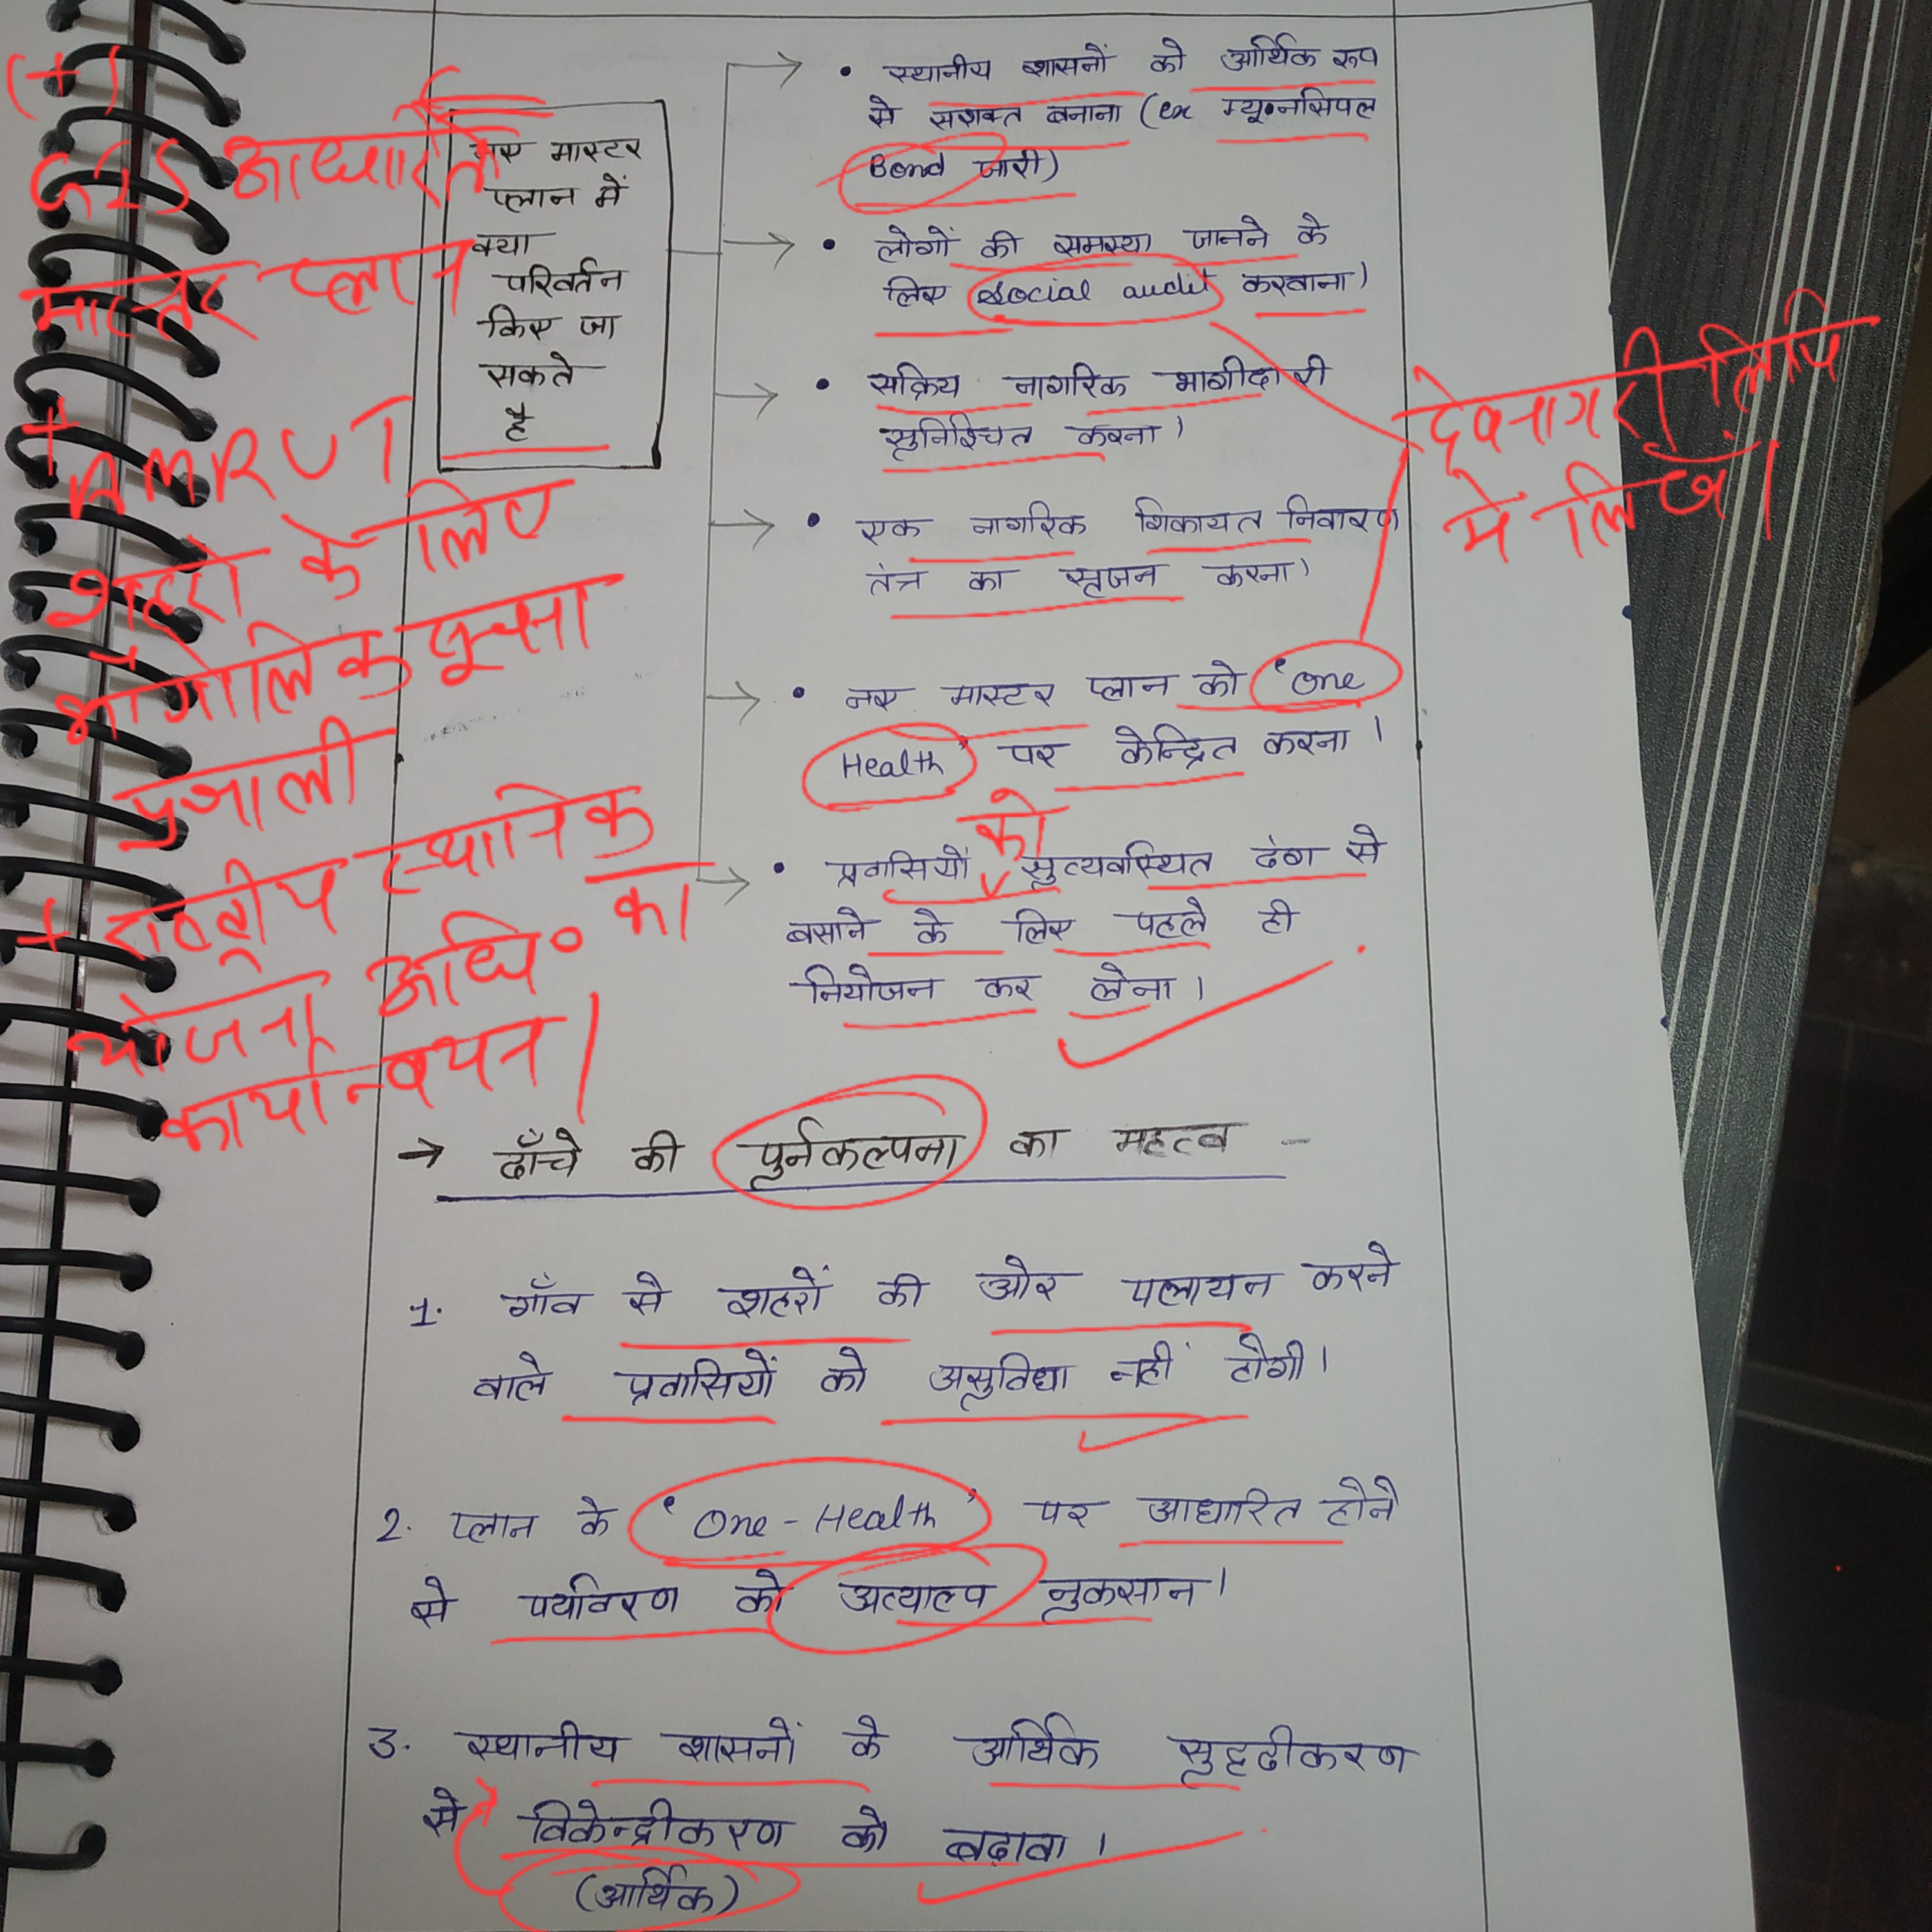 (+)
GIS आधारित
मास्टर प्लान
+ AMRUT
शहरो के लिए
भौगोलिक सूचना
प्रणाली
+ राष्ट्रीय स्थानिक
योजना अधि० का
कार्यान्वयन।
नए मास्टर
प्लान में
क्या
परिवर्तन
किए जा
सकते
है
• स्थानीय शासनों को आर्थिक रूप
से सशक्त बनाना (ex म्यूनसिपल
Bond जारी)
• लोगों की समस्या जानने के
लिए social audit करवाना।
• सक्रिय नागरिक भागीदारी
सुनिश्चित करना।
देवनागरी लिपि
मे लिखें।
• एक नागरिक शिकायत निवारण
तंत्र का सृजन करना।
• नए मास्टर प्लान को 'One
Health' पर केन्द्रित करना।
को
• प्रवासियों सुव्यवस्थित ढंग से
बसाने के लिए पहले ही
नियोजन कर लेना।
→ ढाँचे की पुर्नकल्पना का महत्व -
1. गाँव से शहरों की ओर पलायन करने
वाले प्रवासियों को असुविधा नहीं होगी।
2. प्लान के 'One-Health' पर आधारित होने
से पर्यावरण को अत्याल्प नुकसान।
3. स्थानीय शासनों के आर्थिक सुदृढीकरण
से विकेन्द्रीकरण को बढ़ावा।
(आर्थिक)